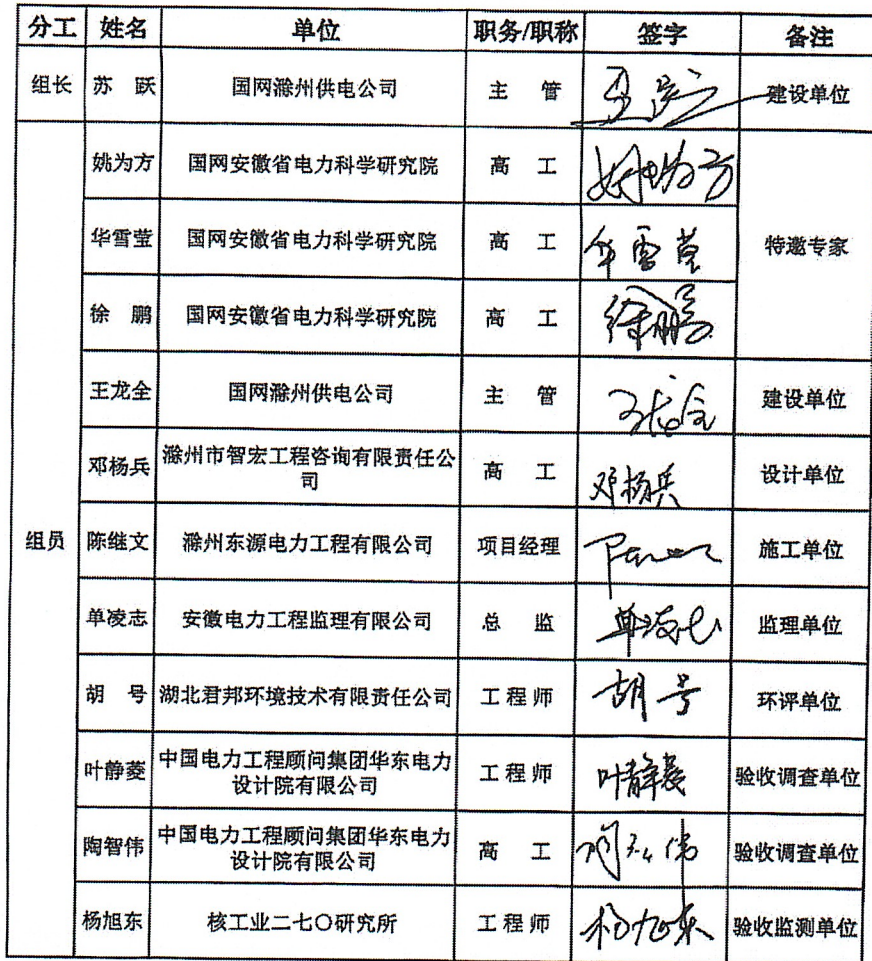 分工 姓名 单位 职务/职称 签字 备注
组长 苏 跃 国网滁州供电公司 主 管 建设单位
组员
姚为方 国网安徽省电力科学研究院 高 工 姚为方
特邀专家
华雪莹 国网安徽省电力科学研究院 高 工 华雪莹
徐 鹏 国网安徽省电力科学研究院 高 工 徐鹏
王龙全 国网滁州供电公司 主 管 王龙全 建设单位
邓杨兵 滁州市智宏工程咨询有限责任公
司 高 工 邓杨兵 设计单位
陈继文 滁州东源电力工程有限公司 项目经理 施工单位
单凌志 安徽电力工程监理有限公司 总 监 单凌志 监理单位
胡 号 湖北君邦环境技术有限责任公司 工程师 胡号 环评单位
叶静菱 中国电力工程顾问集团华东电力
设计院有限公司 工程师 叶静菱 验收调查单位
陶智伟 中国电力工程顾问集团华东电力
设计院有限公司 高 工 陶智伟 验收调查单位
杨旭东 核工业二七〇研究所 工程师 杨旭东 验收监测单位